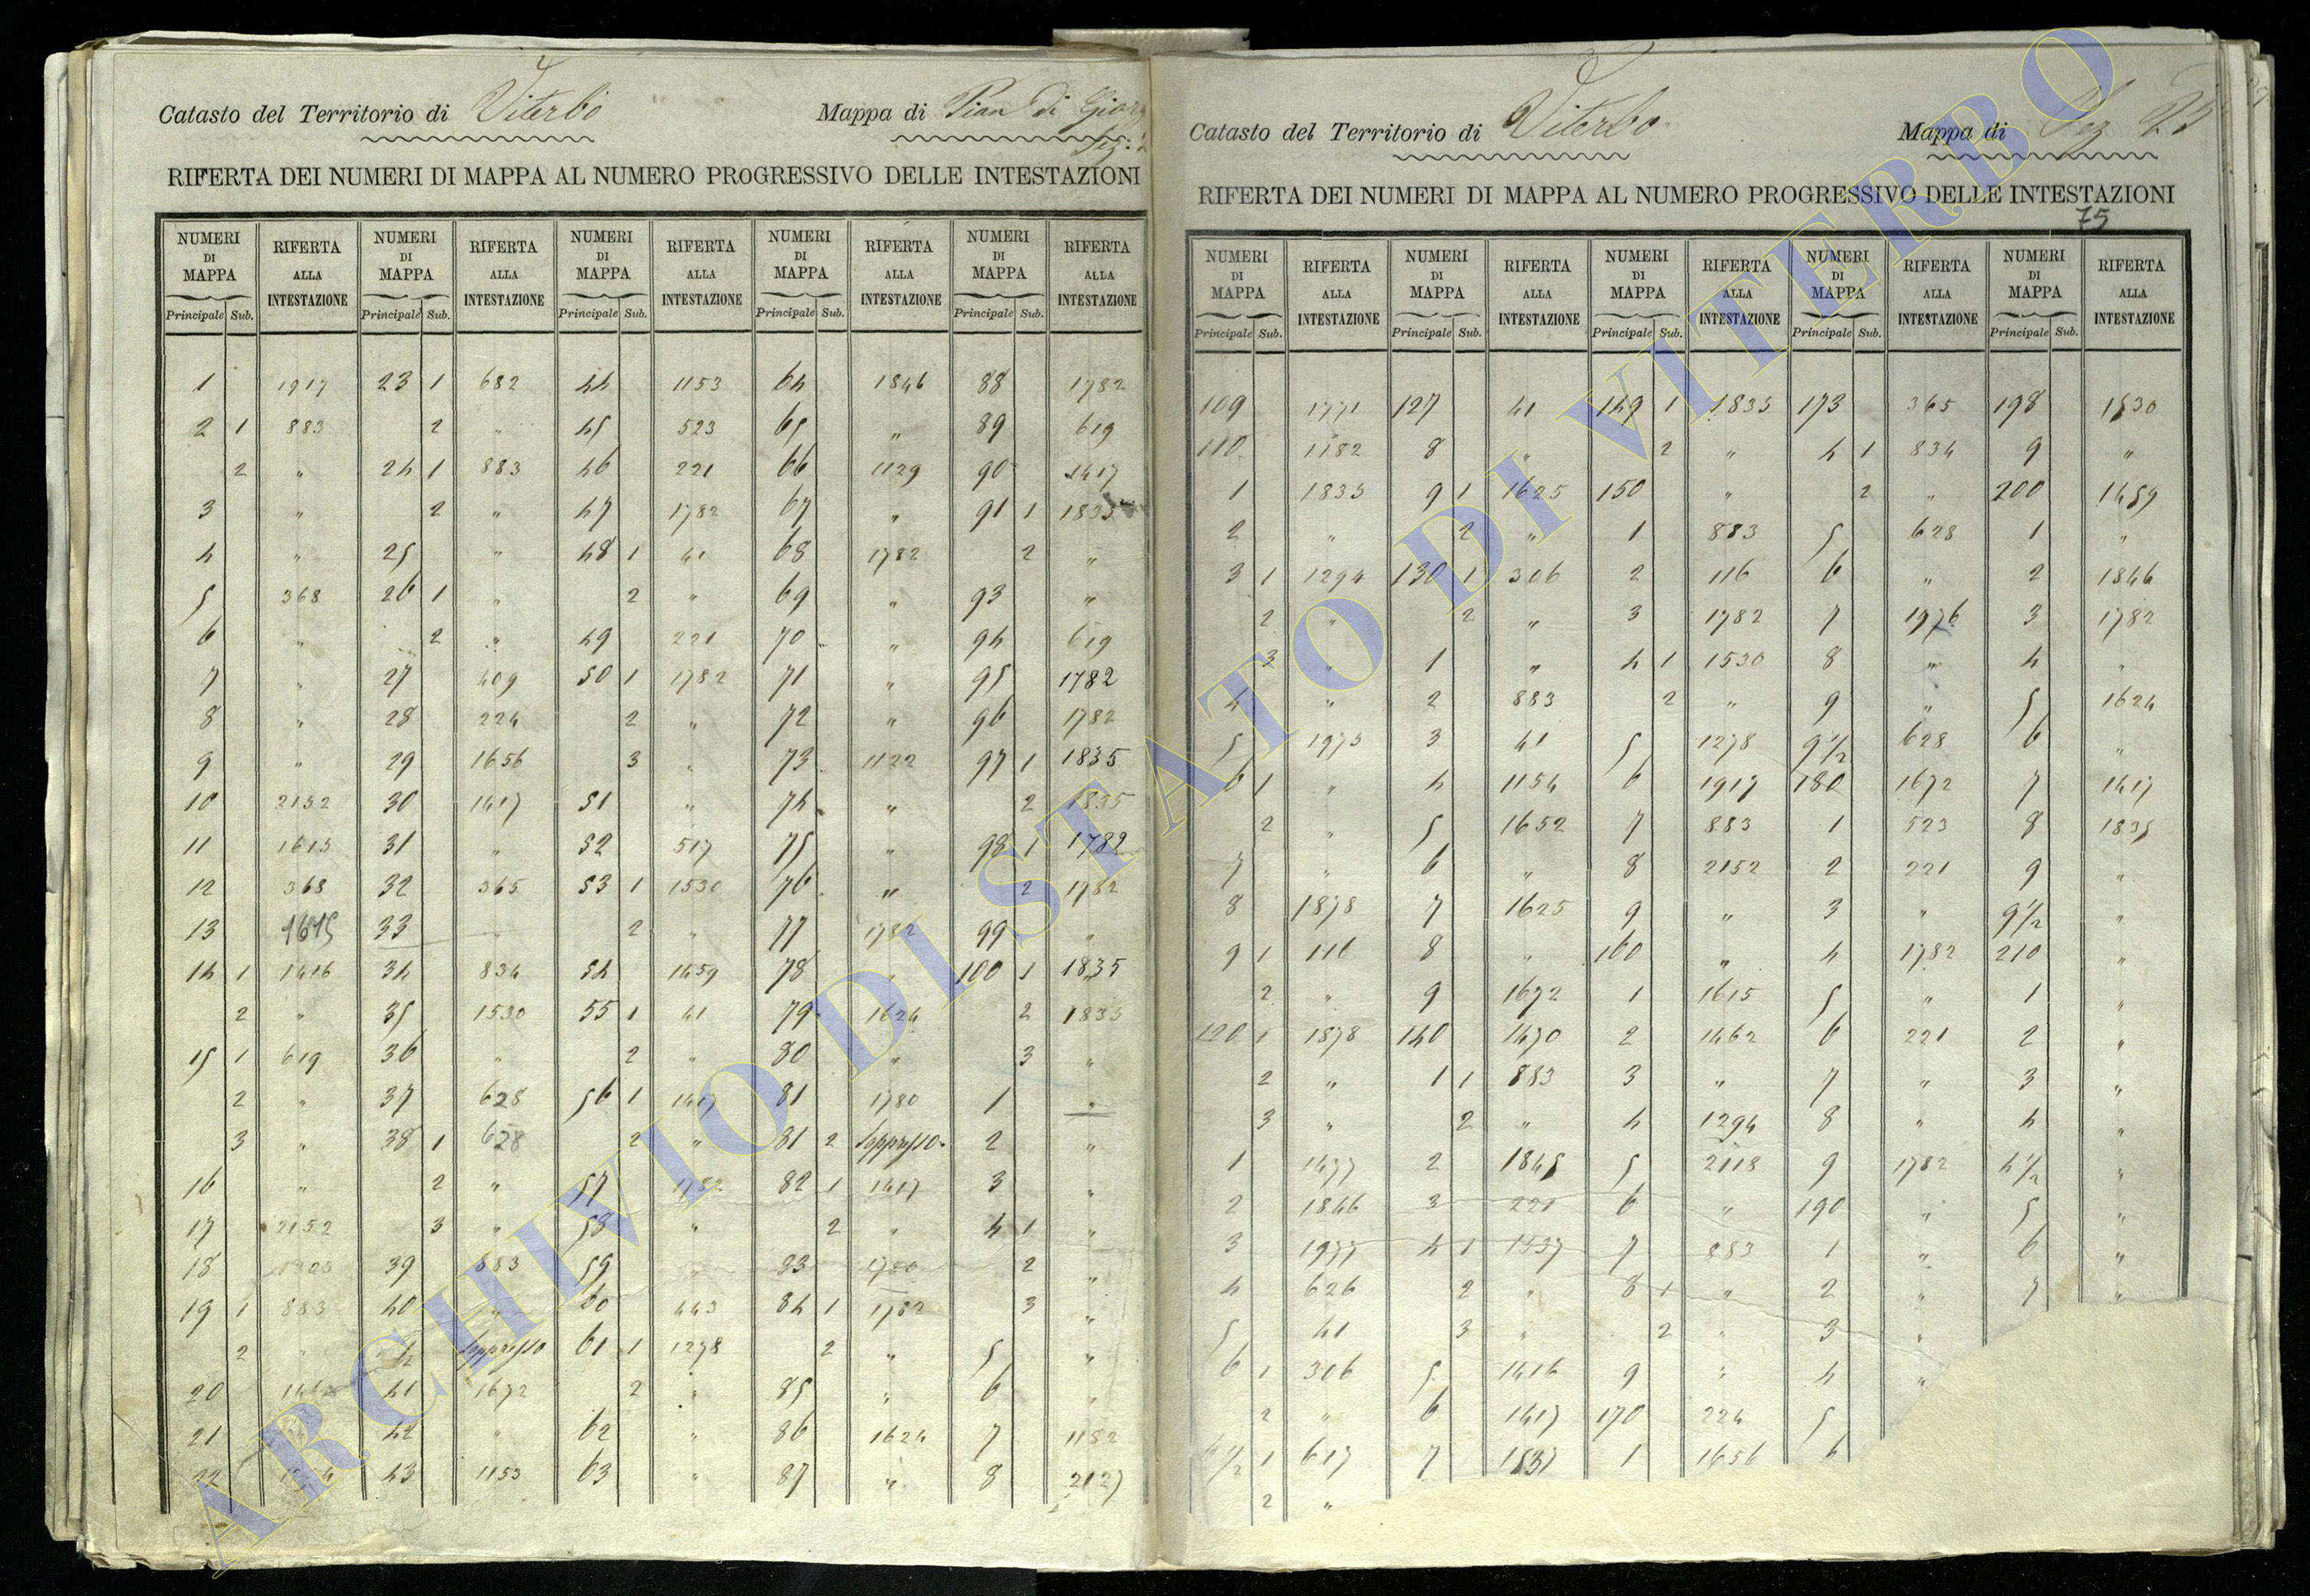 Catasto del Territorio di Viterbo Mappa di Pian di Giorg
Sez:
RIFERTA DEI NUMERI DI MAPPA AL NUMERO PROGRESSIVO DELLE INTESTAZIONI
NUMERI DI MAPPA RIFERTA ALLA INTESTAZIONE NUMERI DI MAPPA RIFERTA ALLA INTESTAZIONE NUMERI DI MAPPA RIFERTA ALLA INTESTAZIONE NUMERI DI MAPPA RIFERTA ALLA INTESTAZIONE NUMERI DI MAPPA RIFERTA ALLA INTESTAZIONE
Principale Sub. Principale Sub. Principale Sub. Principale Sub. Principale Sub.
1 1917 23 1 682 44 1153 64 1846 88 1782
2 1 883 2 " 45 523 65 " 89 619
2 " 24 1 883 46 221 66 1129 90 1417
3 " 2 " 47 1782 67 " 91 1 1835
4 " 25 " 48 1 41 68 1782 2 "
5 368 26 1 " 2 " 69 " 93 "
6 " 2 " 49 221 70 " 94 619
7 " 27 409 50 1 1782 71 " 95 1782
8 " 28 224 2 " 72 " 96 1782
9 " 29 1656 3 " 73 1122 97 1 1835
10 2152 30 1417 51 " 74 " 2 1835
11 1615 31 " 52 517 75 " 98 1 1782
12 368 32 365 53 1 1530 76 " 2 1782
13 1615 33 " 2 " 77 1782 99 "
14 1 1416 34 834 54 1459 78 " 100 1 1835
2 " 35 1530 55 1 41 79 1624 2 1835
15 1 619 36 " 2 " 80 " 3 "
2 " 37 628 56 1 1417 81 1780 1 "
3 " 38 1 628 2 " 81 2 Soppresso 2 "
16 " 2 " 57 1782 82 1 1417 3 "
17 2152 3 " 58 " 2 " 4 1 "
18 39 883 59 " 83 1780 2 "
19 1 883 40 " 60 443 84 1 1782 3 "
2 " 1/2 Soppresso 61 1 1278 2 " 5 "
20 41 1672 2 " 85 " 6 "
21 42 " 62 " 86 1624 7 1182
22 43 1153 63 " 87 " 8 2127
Catasto del Territorio di Viterbo Mappa di Sez
RIFERTA DEI NUMERI DI MAPPA AL NUMERO PROGRESSIVO DELLE INTESTAZIONI
75
NUMERI DI MAPPA RIFERTA ALLA INTESTAZIONE NUMERI DI MAPPA RIFERTA ALLA INTESTAZIONE NUMERI DI MAPPA RIFERTA ALLA INTESTAZIONE NUMERI DI MAPPA RIFERTA ALLA INTESTAZIONE NUMERI DI MAPPA RIFERTA ALLA INTESTAZIONE
Principale Sub. Principale Sub. Principale Sub. Principale Sub. Principale Sub.
109 1771 127 41 149 1 1835 173 365 198 1530
110 1182 8 " 2 " 4 1 834 9 "
1 1835 9 1 1625 150 " 2 " 200 1459
2 " 2 " 1 883 5 628 1 "
3 1 1294 130 1 306 2 116 6 " 2 1846
2 " 2 " 3 1782 7 1976 3 1782
3 " 1 " 4 1 1530 8 " 4 "
4 " 2 883 2 " 9 " 5 1624
5 1975 3 41 5 1278 9 1/2 628 6 "
6 1 " 4 1154 6 1917 180 1672 7 1417
2 " 5 1652 7 883 1 523 8 1835
7 " 6 " 8 2152 2 221 9 "
8 1878 7 1625 9 " 3 " 9 1/2 "
9 1 116 8 " 160 " 4 1782 210 "
2 " 9 1672 1 1615 5 " 1 "
120 1 1878 140 1470 2 1462 6 221 2 "
2 " 1 1 883 3 " 7 " 3 "
3 " 2 " 4 1294 8 " 4 "
1 1477 2 1845 5 2118 9 1782 4 1/2 "
2 1846 3 221 6 " 190 " 5 "
3 1977 4 1 1437 7 883 1 " 6 "
4 626 2 " 8 1 " 2 " 7 "
5 41 3 " 2 " 3 "
6 1 306 5 1416 9 " 4 "
2 " 6 1417 170 224 5
6 1/2 1 617 7 1837 1 1656 6
2 "
ARCHIVIO DI STATO DI VITERBO